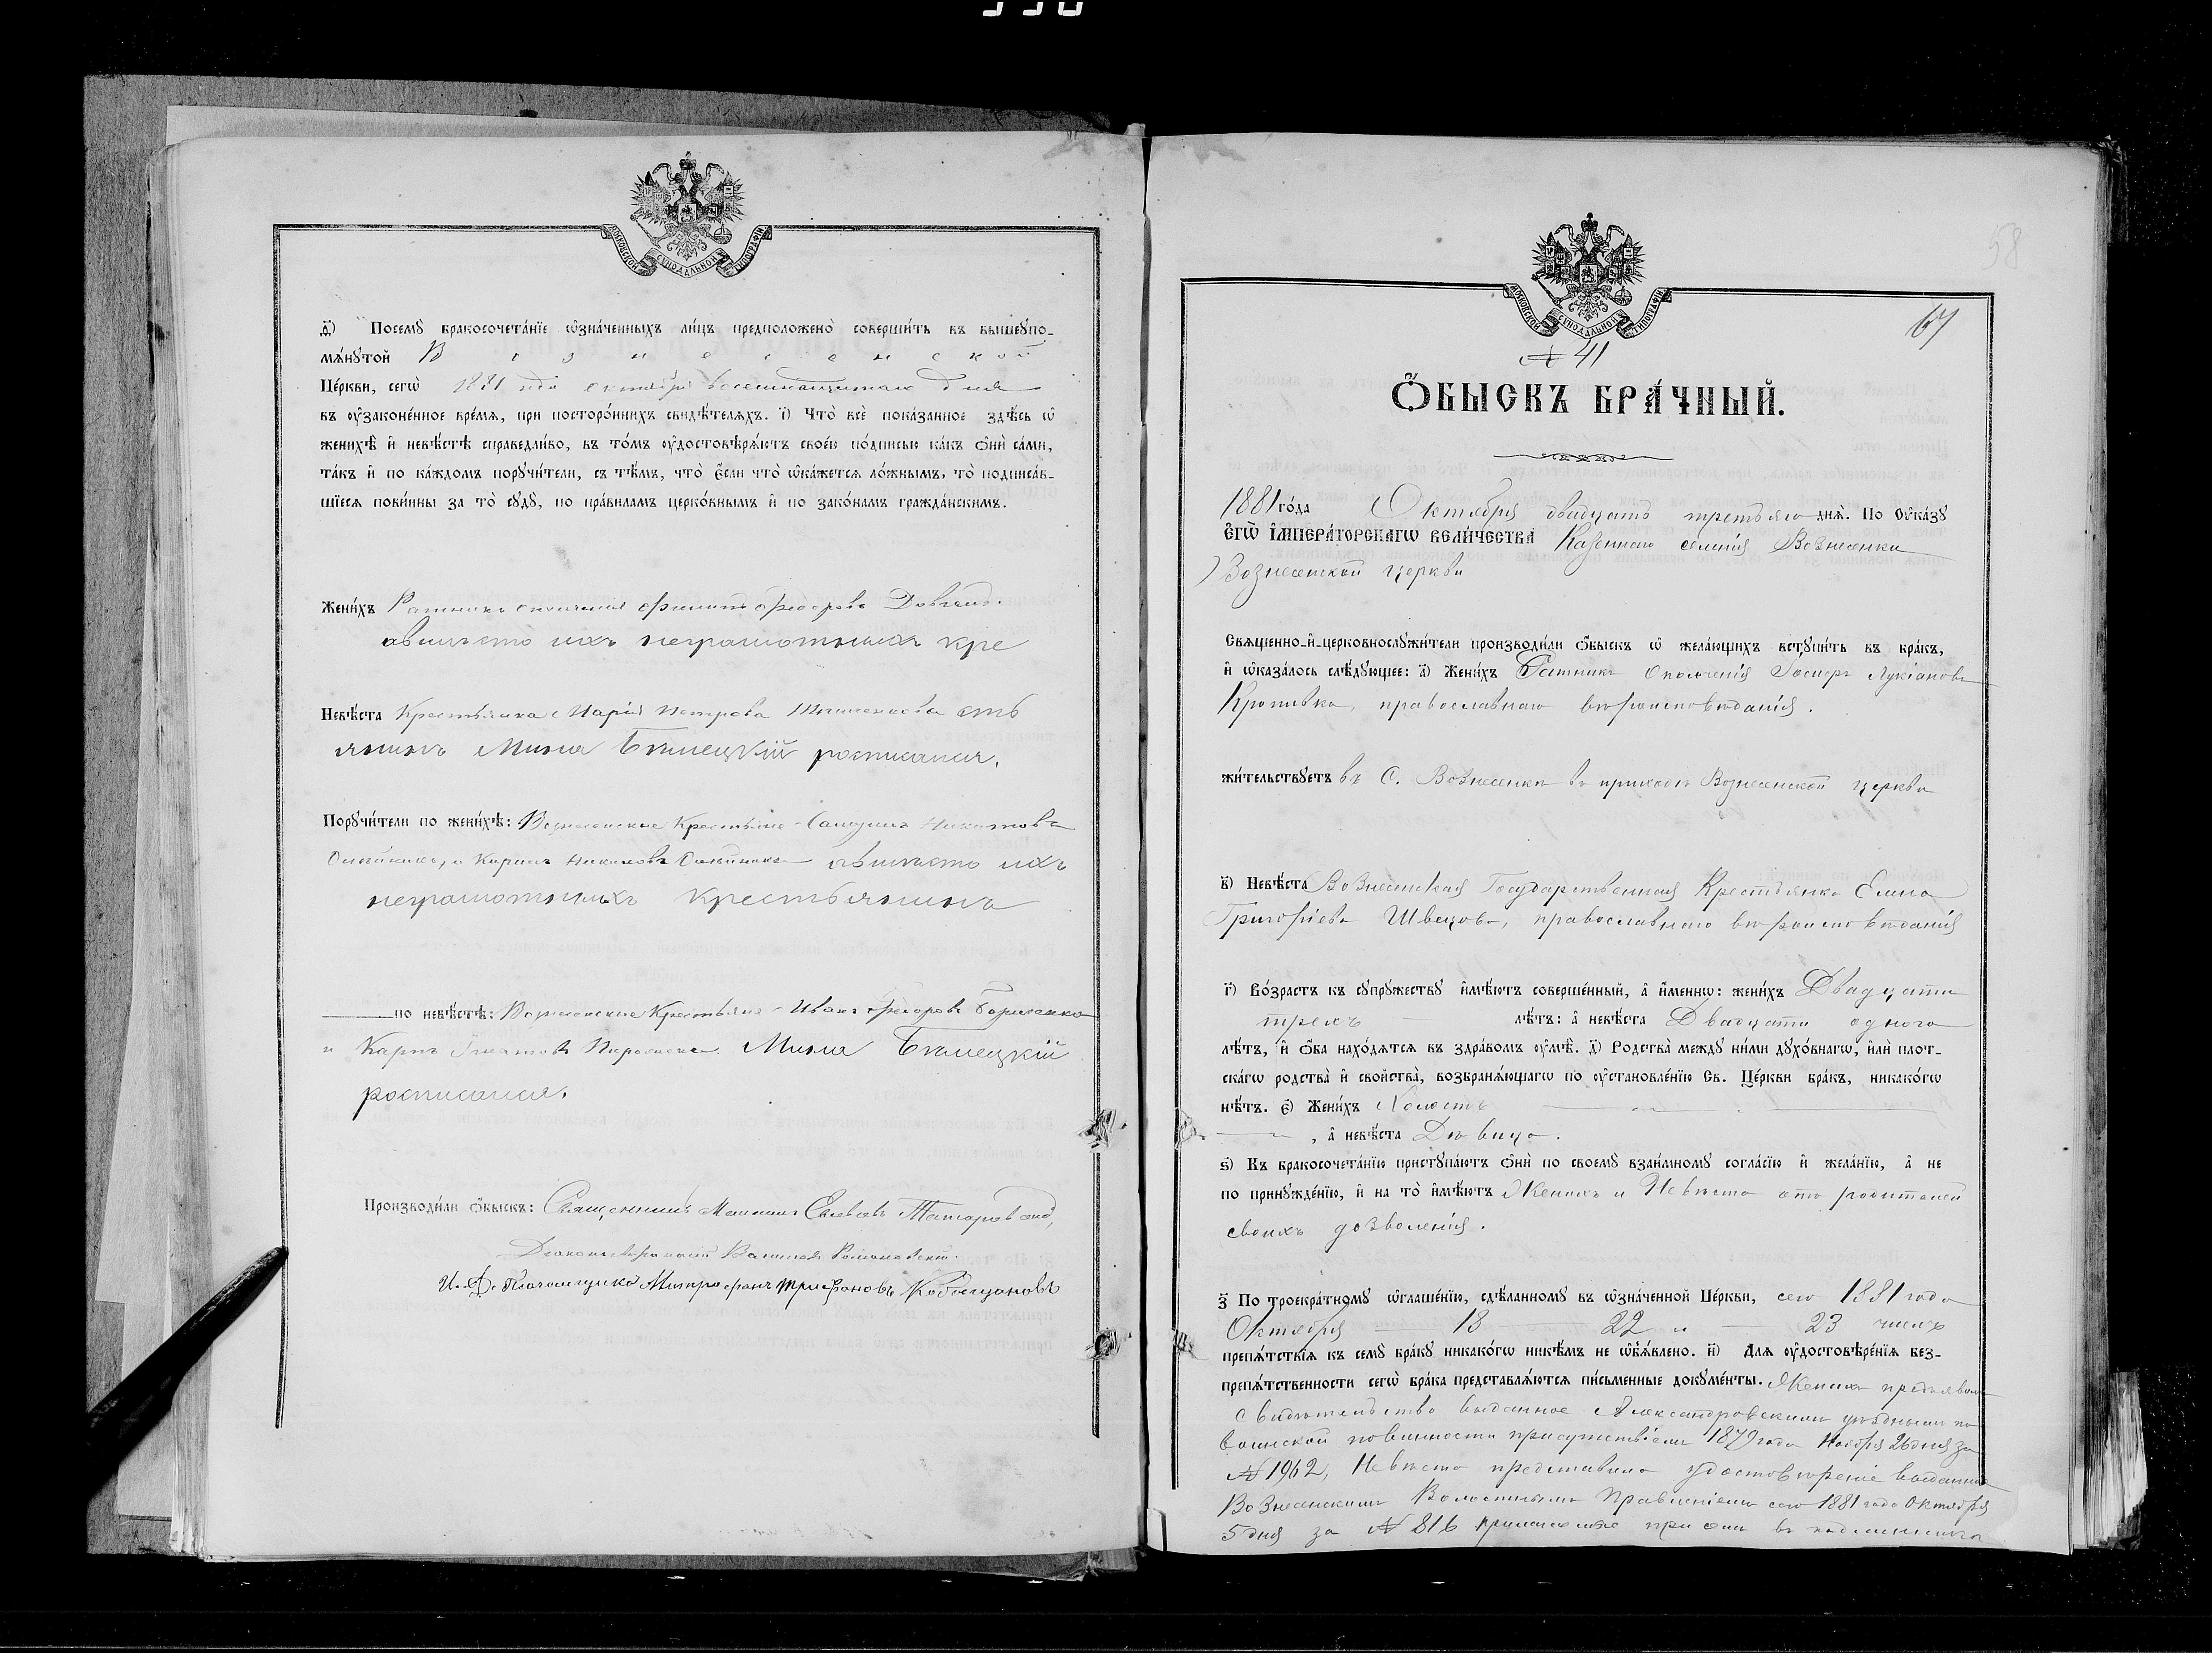 МОСКОВСКОЙ СѴНОДАЛЬНОЙ ТИПОГРАФІИ
д҃і) Посемꙋ бракосочета́нїе ѡ҆зна́ченныхъ ли́цъ предположено̀ соверши́ть въ вышеꙋпо-
мѧ́нꙋтой Вознесенской
Це́ркви, сегѡ̀ 1881 года октября восемнадцатаго дня
въ ᲂу҆законе́нное вре́мѧ, при посторо́ннихъ свидѣ́телѧхъ. і҃) Что̀ всѐ пока́занное здѣ́сь ѡ҆
женихѣ̀ и҆ невѣ́стѣ справедли́во, въ то́мъ ᲂу҆достовѣрѧ́ютъ свое́ю по́дписью ка́къ ѻ҆нѝ са́ми,
та́къ и҆ по ка́ждомъ порꙋчи́тели, съ тѣ́мъ, что̀ є҆́сли что̀ ѡ҆ка́жетсѧ ло́жнымъ, то̀ подписа́в-
шїесѧ пови́нны за то̀ сꙋдꙋ̀, по пра́виламъ церко́внымъ и҆ по зако́намъ гражда́нскимъ.
Жени́хъ Ратникъ ополченія Филипъ Федоровъ
авместо ихъ неграмотныхъ кре
Невѣ́ста Крестьянка Марія Петрова сть
янинъ Мина Билецкій росписался.
Порꙋчи́тели по женихѣ̀: Вознесенские Крестьяне Самуилъ Никитовъ
Олейникъ, и Карпъ Олейникъ авместо ихъ
неграмотныхъ крестьянинъ
по невѣ́стѣ: Вознесенские Крестьяне Иванъ Федоровъ Борисенко
и Карпъ Игнатовъ Мина Билецкій
росписался.
Производи́ли ѻ҆́быскъ: Священникъ
Василій Романовскій
И. Д. Псаломщика Митрофанъ Трифоновъ
58
67
МОСКОВСКОЙ СѴНОДАЛЬНОЙ ТИПОГРАФІИ
№ 41
Ѻ҆́БЫСКЪ БРА́ЧНЫЙ.
1881 го́да Октября двадцать третьяго днѧ̀. По ᲂу҆ка́зꙋ
є҆гѡ̀ і҆мпера́торскагѡ вели́чества Казеннаго селенія Вознесенки
Вознесенской церкви
Свѧще́нно-и҆-церковнослꙋжи́тели производи́ли ѻ҆́быскъ ѡ҆ жела́ющихъ встꙋпи́ть въ бра́къ,
и҆ ѡ҆каза́лось слѣ́дꙋющее: а҃) Жени́хъ Ратникъ Ополченія Іосифъ Лукіановъ
Кропивка, православнаго вѣроисповѣданія.
жи́тельствꙋетъ въ С. Вознесенкѣ въ приходѣ Вознесенской церкви
в҃) Невѣ́ста Вознесенская Государственная Крестьянка Елена
Григоріева Швецова, православнаго вѣроисповѣданія
г҃) Во́зрастъ къ сꙋпрꙋ́жествꙋ и҆мѣ́ютъ соверше́нный, а҆ и҆́меннѡ: жени́хъ Двадцати
трехъ лѣ́тъ: а҆ невѣ́ста Двадцати одного
лѣ́тъ, и҆ ѻ҆́ба нахо́дѧтсѧ въ здра́вомъ ᲂу҆мѣ̀. д҃) Родства̀ междꙋ̀ ни́ми дꙋхо́внагѡ, и҆лѝ плот-
ска́гѡ родства̀ и҆ сво́йства̀, возбранѧ́ющагѡ по ᲂу҆становле́нїю Св. Це́ркви бра́къ, никако́гѡ
нѣ́тъ. є҃) Жени́хъ Холостъ
, а҆ невѣ́ста Дѣвица.
ѕ҃) Къ бракосочета́нїю пристꙋпа́ютъ ѻ҆нѝ по своемꙋ̀ взаи́мномꙋ согла́сїю и҆ жела́нїю, а҆ не
по принꙋжде́нїю, и҆ на то̀ и҆мѣ́ютъ Женихъ и Невѣста отъ родителей
своихъ дозволенія.
з҃ По троекра́тномꙋ ѡ҆глаше́нїю, сдѣ́ланномꙋ въ ѡ҆зна́ченной Це́ркви, сего 1881 года
Октября 18 22 и 23 числъ
препѧ́тствїѧ къ семꙋ̀ бра́кꙋ никако́гѡ никѣ́мъ не ѡ҆б̾ѧ́влено. и҃) Длѧ ᲂу҆достовѣре́нїѧ без-
препѧ́тственности сегѡ̀ бра́ка представлѧ́ютсѧ пи́сьменные докꙋме́нты. Женихъ предъявилъ
свидѣтельство выданное Александровскимъ уѣзднымъ по
воинской повинности присутствіемъ 1879 года Ноября 26 дня за
№ 1962, Невѣста представила удостовѣреніе выданное
Вознесенскимъ Волостнымъ Правленіемъ сего 1881 года Октября
5 дня за № 816 при семъ въ